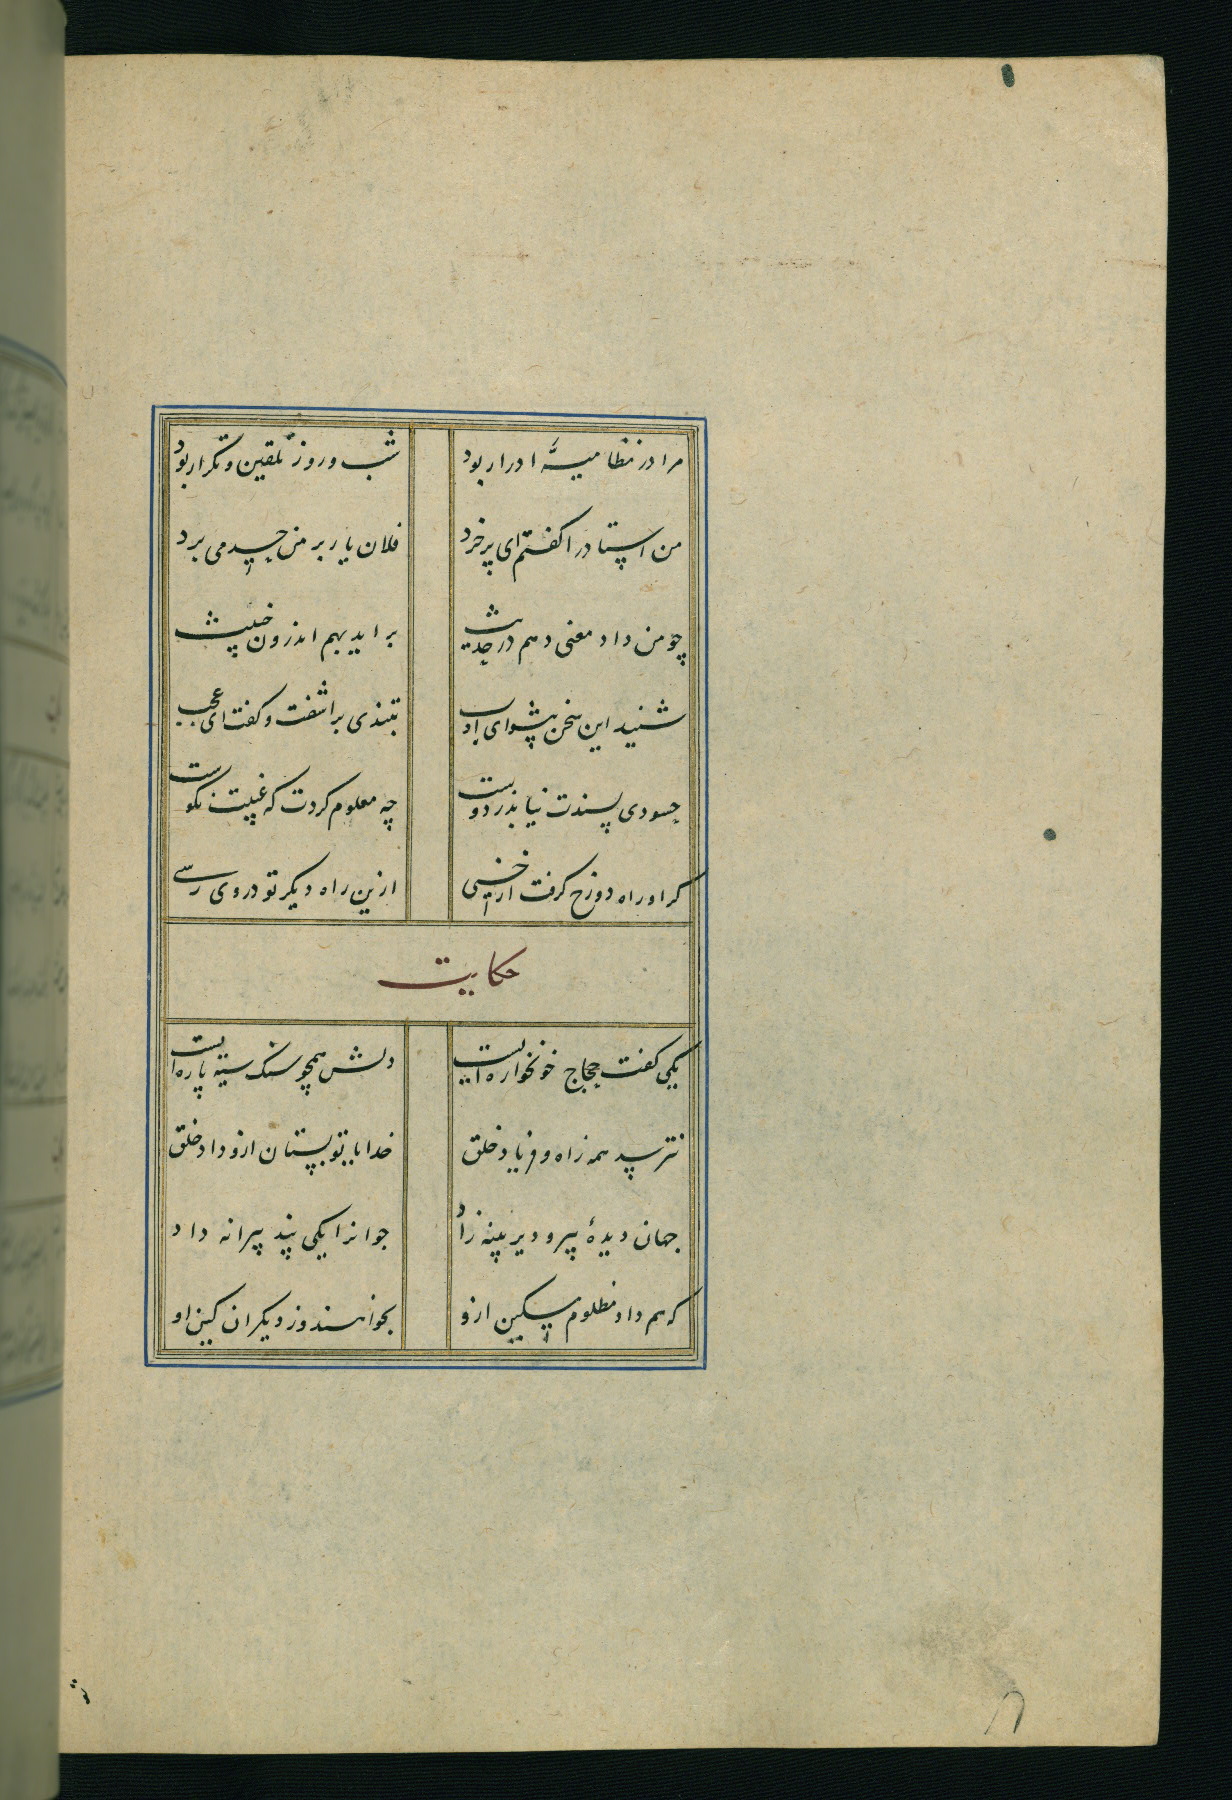 مرا در نظامیه ادرار بود
شب و روز تلقین و تکرار بود
من استاد را گفتم ای پر خرد
فلان یار بر من حسد می برد
چو من داد معنی دهم در حدیث
براید بهم اندرون خبیث
شنید این سخن پیشوای ادب
بتندی براشفت و گفت ای عجب
حسودی پسندت نیامد ز دوست
چه معلوم کردت که غیبت نکوست
گر او راه دوزخ گرفت از خسی
ازین راه دیگر تو در وی رسی
حکایت
یکی گفت حجاج خونخواره ایست
دلش همچو سنک سیه پاره ایست
نترسد همه ز اه و فریاد خلق
خدایا تو بستان ازو داد خلق
جهان دیدهٔ پیر و دیرینه زاد
جوانرا یکی پند پیرانه داد
که هم داد مظلوم مسکین ازو
بخواهند و ز دیگران کین او